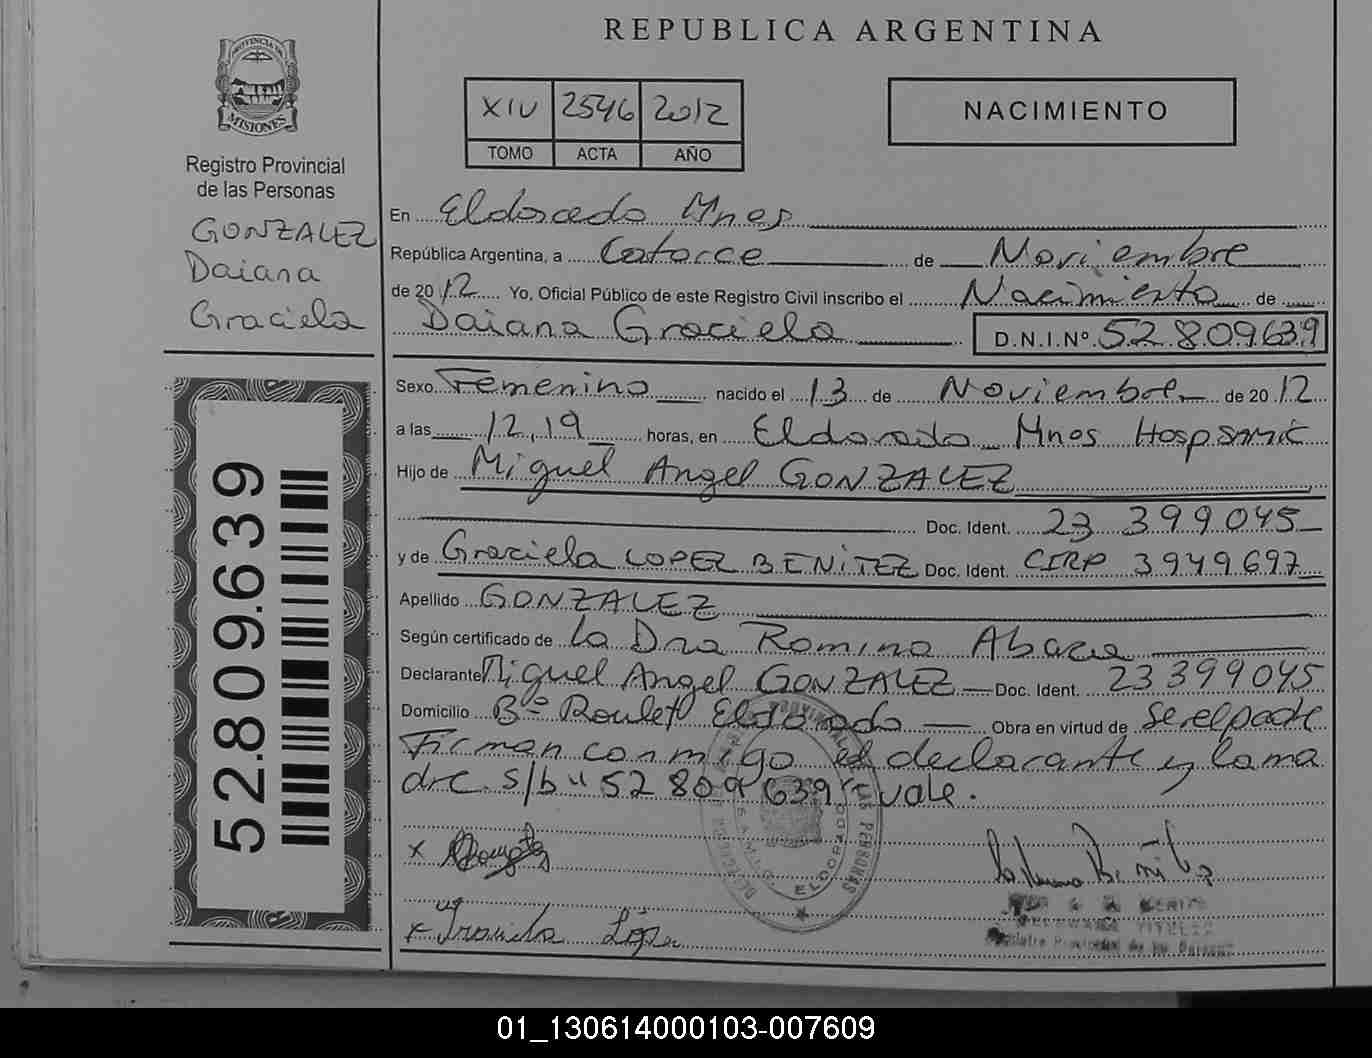 REPUBLICA ARGENTINA
PROVINCIA DE
MISIONES
Registro Provincial
de las Personas
GONZALEZ
Daiana
Graciela
52.809.639
XIV 2546 2012
TOMO ACTA AÑO
NACIMIENTO
En Eldorado Mnes
República Argentina, a Catorce de Noviembre
de 2012 Yo, Oficial Público de este Registro Civil inscribo el Nacimiento de
Daiana Graciela D.N.I.Nº 52.809.639
Sexo Femenino nacido el 13 de Noviembre de 2012
a las 12,19 horas, en Eldorado Mnes Hosp SAMIC
Hijo de Miguel Angel GONZALEZ
Doc. Ident. 23 399 045
y de Graciela LOPEZ BENiTEZ Doc. Ident. CIRP 3949697
Apellido GONZALEZ
Según certificado de la Dra Romina
Declarante Miguel Angel GONZALEZ Doc. Ident. 23 399 045
Domicilio Bº Roulet Eldorado Obra en virtud de ser el padre
Firman conmigo el declarante y la ma
dre. s/b "52 809 639" vale.
x
x Graciela López
ELDORADO
01_130614000103-007609